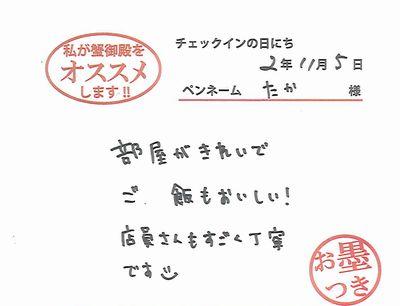 私が蟹御殿を
オススメ
します!!
チェックインの日にち
2年11月5日
ペンネーム たか 様
部屋がきれいで
ご飯もおいしい!
店員さんもすごく丁寧
です
お墨
つき